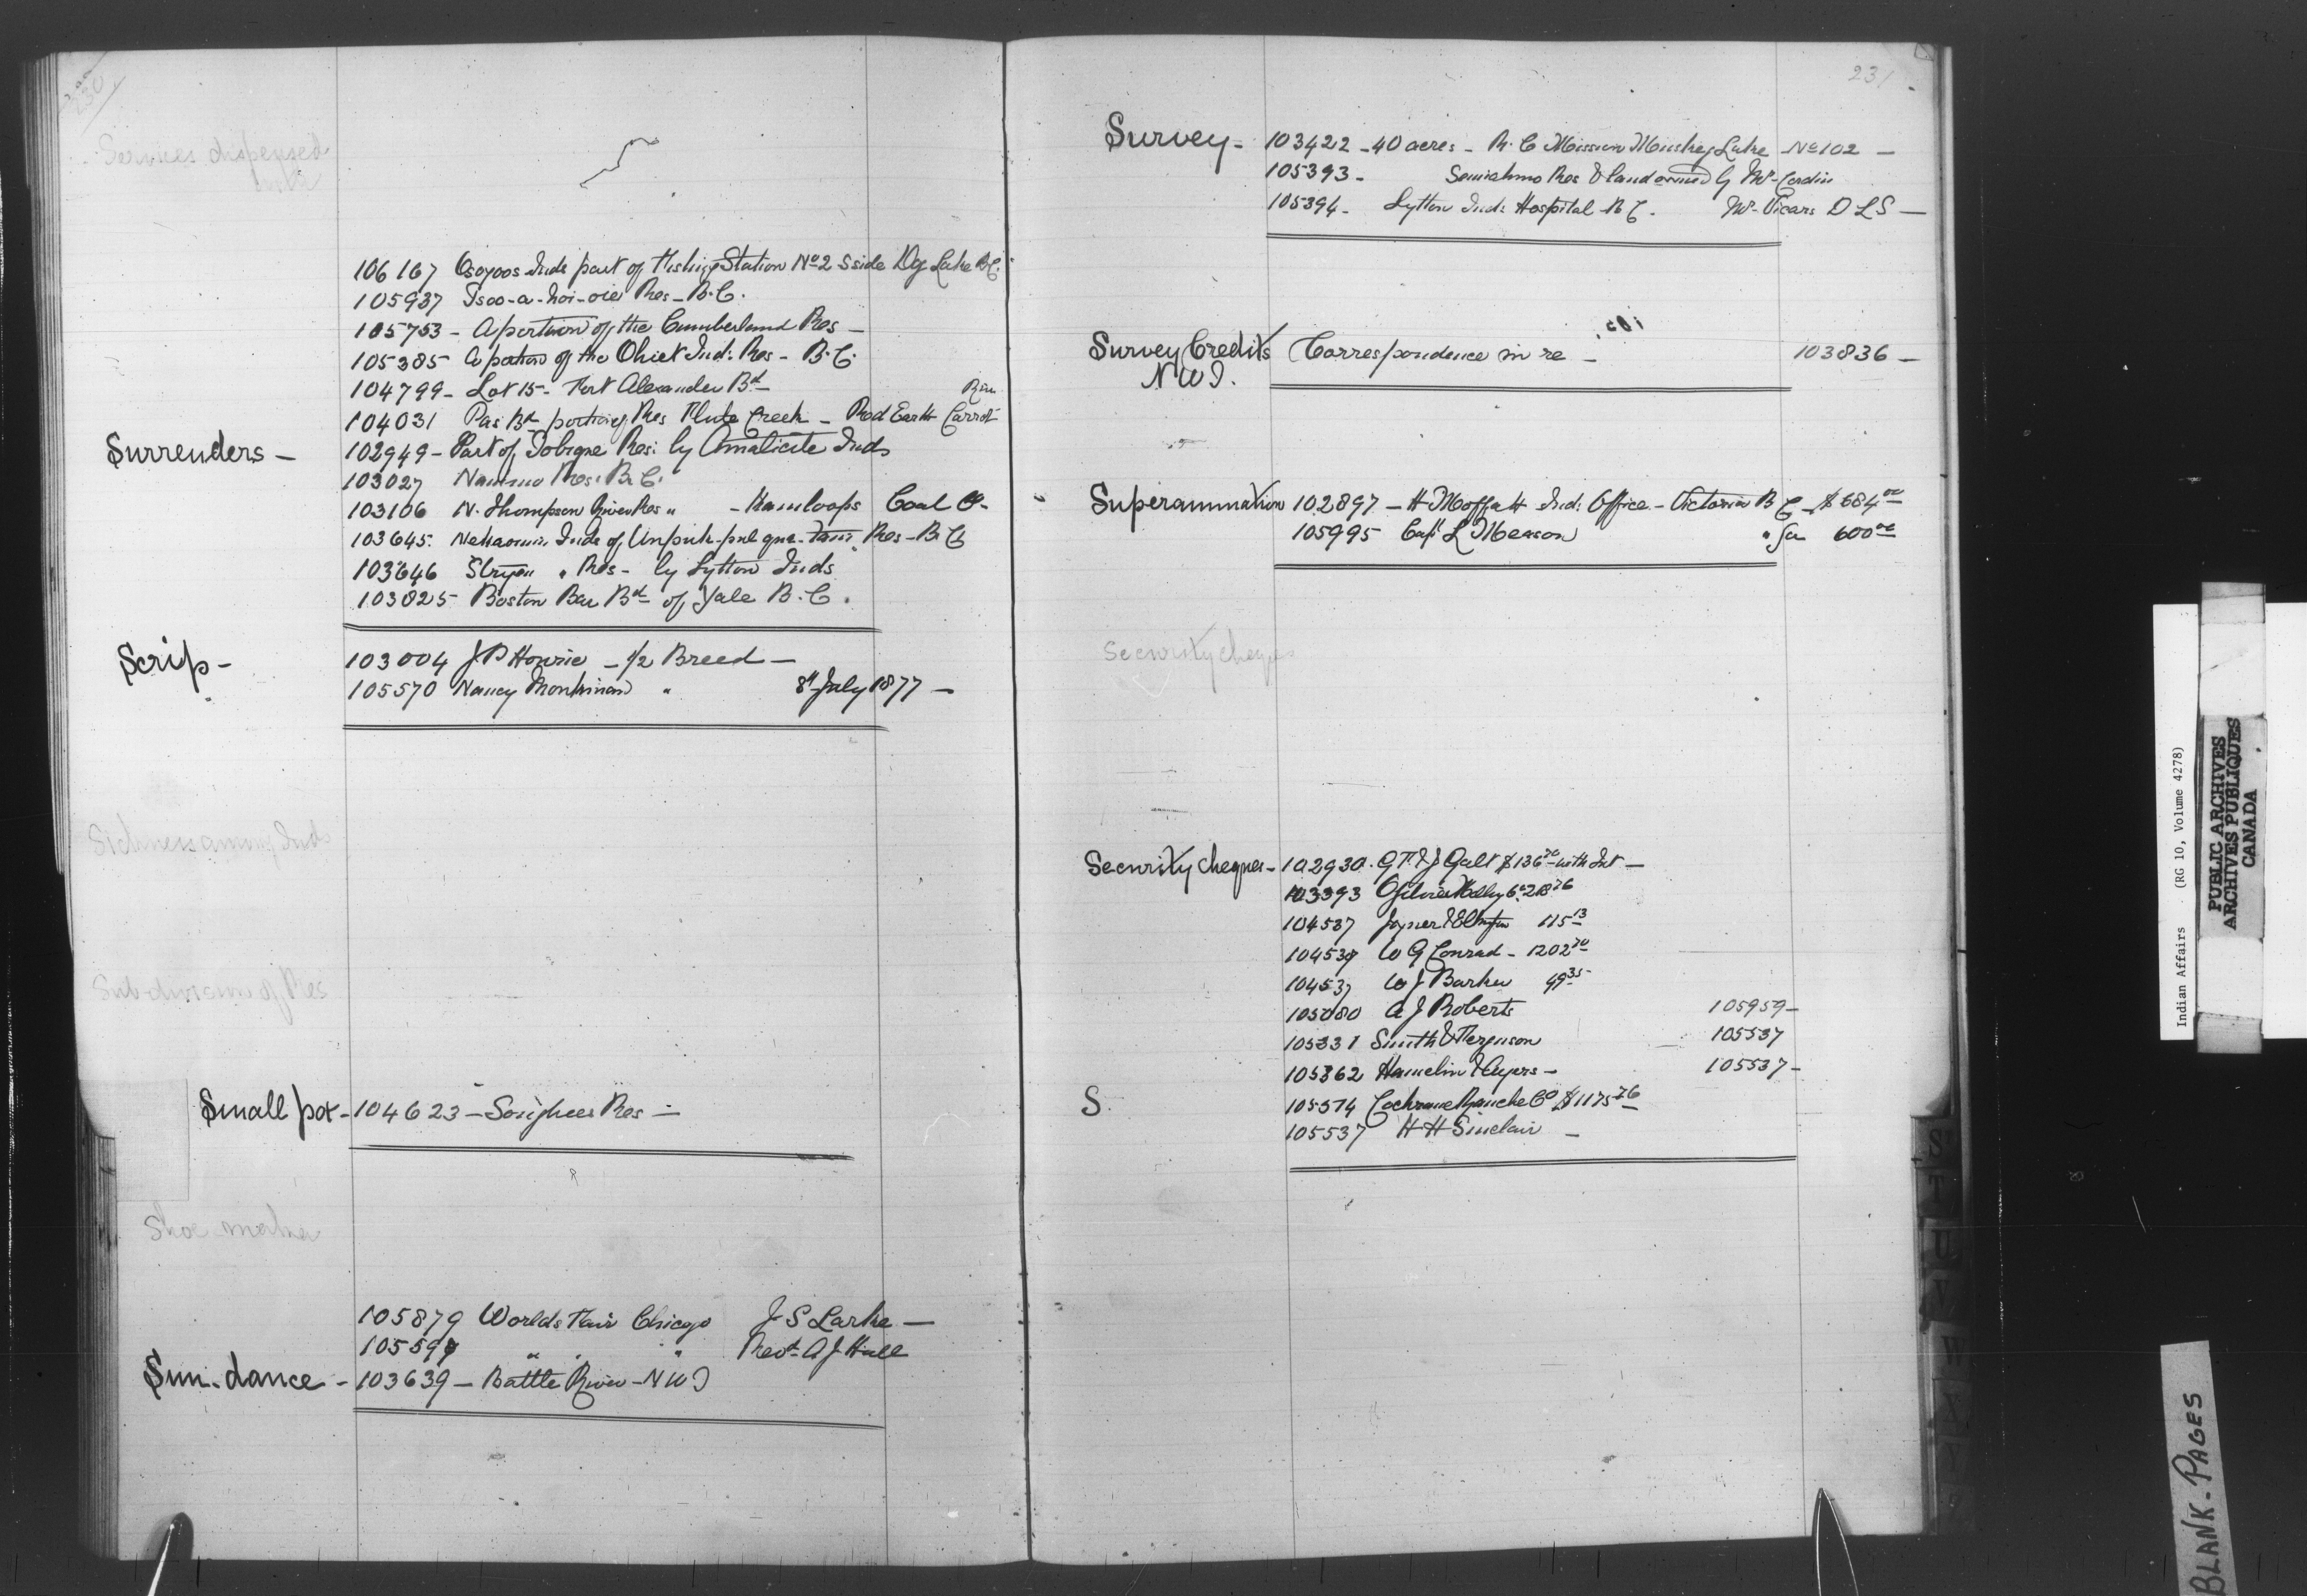 230
Services dispensed
with
106167 Osoyoos Inds part of Fishing Station No 2 S side Dog Lake B.C.
105937 Tsoo-a-hoi-oie Res - B.C.
105753 - A portion of the Cumberland Res -
105385 A portion of the Ohiet Ind: Res - B.C.
104799 - Lot 15 - Fort Alexander Bd -
Riv
104031 Pas Bd portion of Res Flute Creek - Red Earth Carrot
Surrenders - 102949 - Part of Tobique Res: by Amalicite Inds
103027 Nanimo Res: B.C.
103106 N. Thompson River Res " - Kamloops Coal Co -
103645. Inds of Unpuk-pul qua Res - B C
103646 Stryen " Res - by Lytton Inds
103825 Boston Bar Bd of Yale B.C.
Scrip - 103004 J P Hourie - 1/2 Breed -
105570 Nancy " 8th July 1877 -
Sickness among Inds
Sub-division of Res
Small pox - 104623 - Songhees Res -
Shoe maker
105879 Worlds Fair Chicago J S Larke -
10559 " " Revd. A J Hall
Sun-dance - 103639 - Battle River - N W T
231
Survey - 103422 - 40 acres - R. C Mission Muskeg Lake - No 102 -
105393 - Semiahmo Res & land owned by Mr. Cordin
105394 - Lytton Inds Hospital B C. Mr. Vicars D L S -
Survey Credits Correspondence in re - 103836 -
N W T.
Superannuation 102897 - H Moffatt Ind: Office - Victoria B C - $ 684 00
105995 Capt L Meason " for 600 00
Security cheques
Security cheques - 102930. G F & J Galt $ 136 70 with Int -
103393 Ogilvie
104537 Joyner & Elkington 115 13
104537 W G Conrad - 1202 70
104537 W J Barker 99 35
105080 A J Roberts 105959 -
105331 Smith & Ferguson 105537
105362 Hamelin & Ayers - 105537 -
S. 105574 Cochrane Ranche Co $ 1175 76
105537 H H Sinclair -
Indian Affairs (RG 10, Volume 4278)
PUBLIC ARCHIVES
ARCHIVES PUBLIQUES
CANADA
BLANK - PAGES